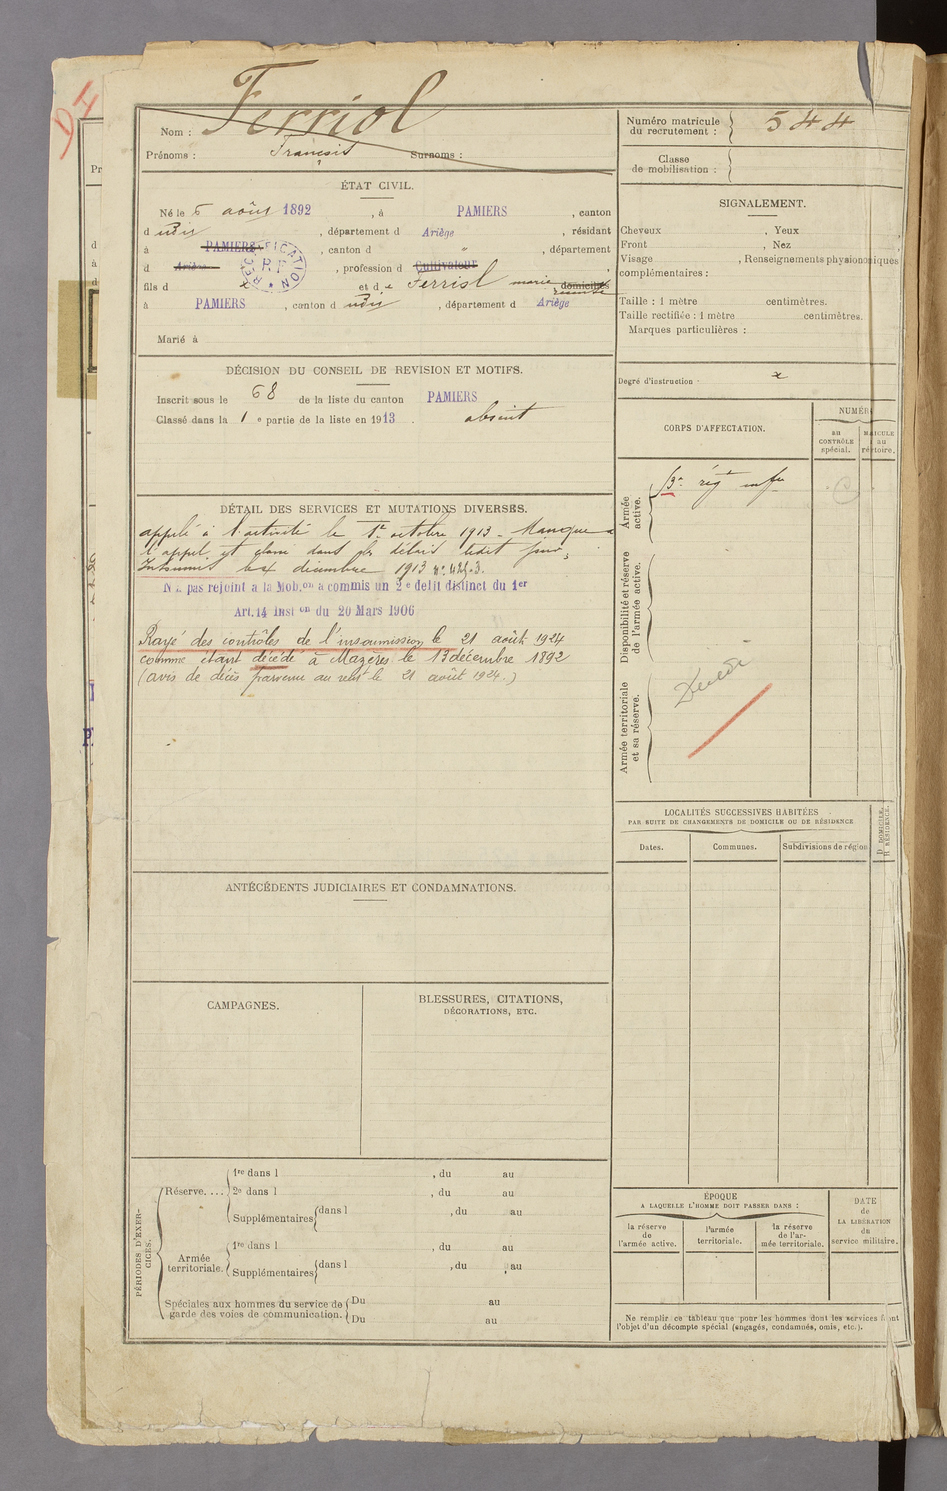 Nom : Ferriol
Prénoms : François Surnoms :
ÉTAT CIVIL.
Né le 5 août 1892, à PAMIERS, canton
d udit, département d Ariège, résidant
à PAMIERS, canton d " , département
d Ariège, profession d Cultivateur
fils d x et d e Ferriol marie domiciliés
à PAMIERS, canton d udit, département d Ariège
Marié à
DÉCISION DU CONSEIL DE REVISION ET MOTIFS.
Inscrit sous le 68 de la liste du canton PAMIERS
Classé dans la 1 e partie de la liste en 1913. absent
DÉTAIL DES SERVICES ET MUTATIONS DIVERSES.
appelé à l'activité le 1er octobre 1913. Manque à
l'appel et dans les délais ledit jour,
Insoumis le 4 décembre 1913
N'a pas rejoint a la Mob.on a commis un 2e delit distinct du 1er
Art.14 Inst on du 20 Mars 1906
Rayé des contrôles de l'insoumission le 21 août 1924
comme étant décédé à Mazères le 13 décembre 1892
(avis de décès parvenu au rect le 21 août 1924.)
ANTÉCÉDENTS JUDICIAIRES ET CONDAMNATIONS.
CAMPAGNES.
BLESSURES, CITATIONS,
DÉCORATIONS, ETC.
PÉRIODES D'EXER-
CICES.
Réserve....
1re dans l , du au
2e dans l , du au
Supplémentaires dans l , du au
Armée
territoriale.
1re dans l , du au
Supplémentaires dans l , du au
Spéciales aux hommes du service de
garde des voies de communication.
Du au
Du au
Numéro matricule
du recrutement : 544
Classe
de mobilisation :
SIGNALEMENT.
Cheveux , Yeux
Front , Nez
Visage , Renseignements physionomiques
complémentaires :
Taille : 1 mètre centimètres.
Taille rectifiée : 1 mètre centimètres.
Marques particulières :
Degré d'instruction x
CORPS D'AFFECTATION.
NUMÉR
au
CONTRÔLE
spécial.
au
Armée
active.
Disponibilité et réserve
de l'armée active.
Armée territoriale
et sa réserve.
Décédé
LOCALITÉS SUCCESSIVES HABITÉES
PAR SUITE DE CHANGEMENTS DE DOMICILE OU DE RÉSIDENCE
Dates. Communes. Subdivisions de région
D DOMICILE.
R RÉSIDENCE.
ÉPOQUE
A LAQUELLE L'HOMME DOIT PASSER DANS :
la réserve
de
l'armée active.
l'armée
territoriale.
la réserve
de l'ar-
mée territoriale.
DATE
de
LA LIBÉRATION
du
service militaire.
Ne remplir ce tableau que pour les hommes dont les services font
l'objet d'un décompte spécial (engagés, condamnés, omis, etc.).
RECTIFICATION
R F